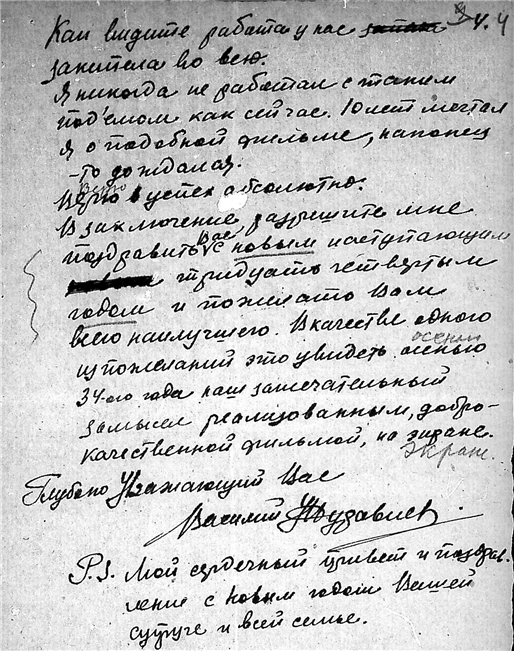 Как видите работа у нас 4. 4
закипела во всю.
Я никогда не работал с таким
под'емом как сейчас. 10 лет мечтал
я о подобной фильме, наконец
-то дождался.
Верю в успех абсолютно.
В заключение разрешите мне
поздравить Вас с новым наступающим
тридцать четвертым
годом и пожелать Вам
всего наилучшего. В качестве одного
из пожеланий это увидеть осенью осенью
34-ого года наш замечательный
замысел реализованным, добро-
качественной фильмой, на экране.
экран.
Глубоко Уважающий Вас
Василий Журавлев
P.S. Мой сердечный привет и поздрав-
ление с новым годом Вашей
супруге и всей семье.